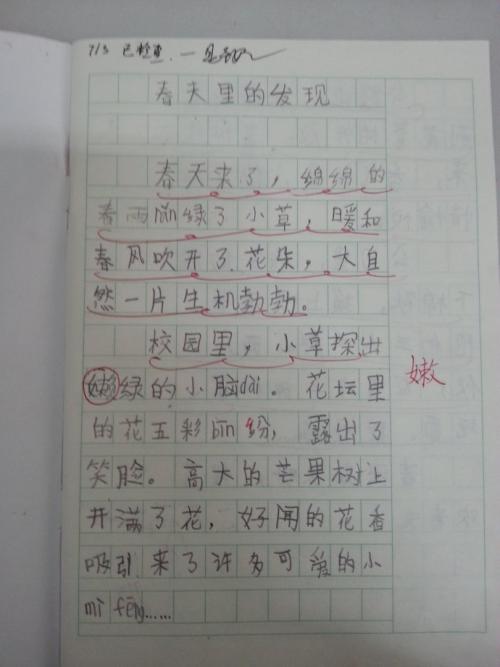 7/3 已检查
春天里的发现
春天来了，绵绵的
春雨lìn绿了小草，暖和
春风吹开了花朵，大自
然一片生机勃勃。
校园里，小草探出
嫩绿的小脑dài。花坛里
嫩
的花五彩bīn纷，露出了
笑脸。高大的芒果树上
开满了花，好闻的花香
吸引来了许多可爱的小
mì fēng……